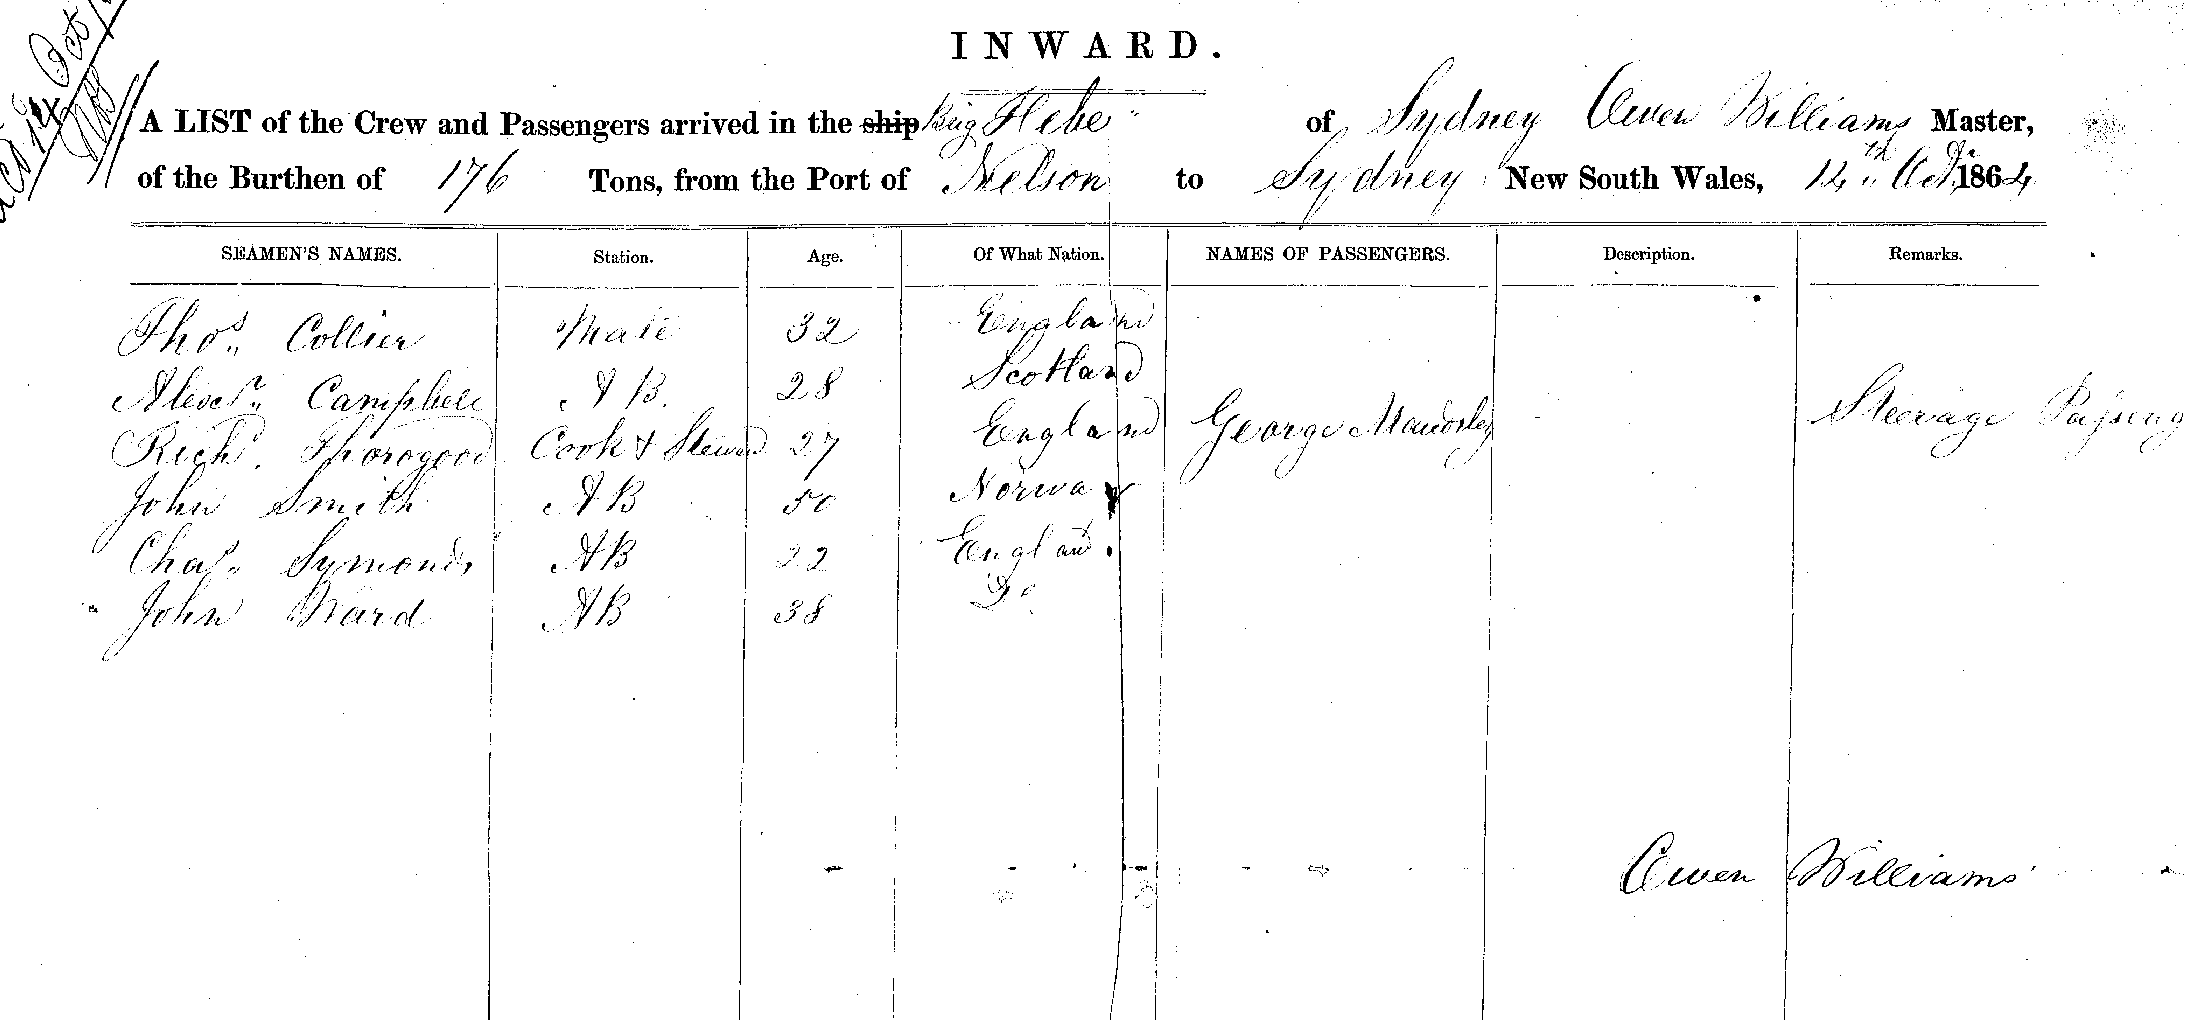 INWARD.
A LIST of the Crew and Passengers arrived in the ship Brig Hebe of Sydney Owen Williams Master,
of the Burthen of 176 Tons, from the Port of Nelson to Sydney New South Wales, 14th Oct. 1864
SEAMEN'S NAMES. Station. Age. Of What Nation. NAMES OF PASSENGERS. Description. Remarks.
Thos. Collier Mate 32 England
Alexr. Campbell A B. 28 Scotland
Richd. Thorogood Cook & Steward 27 England George Mawdsley Steerage Passeng
John Smith AB 50 Norway
Chas. Symonds AB 22 England
John Ward AB 38 Do
Owen Williams